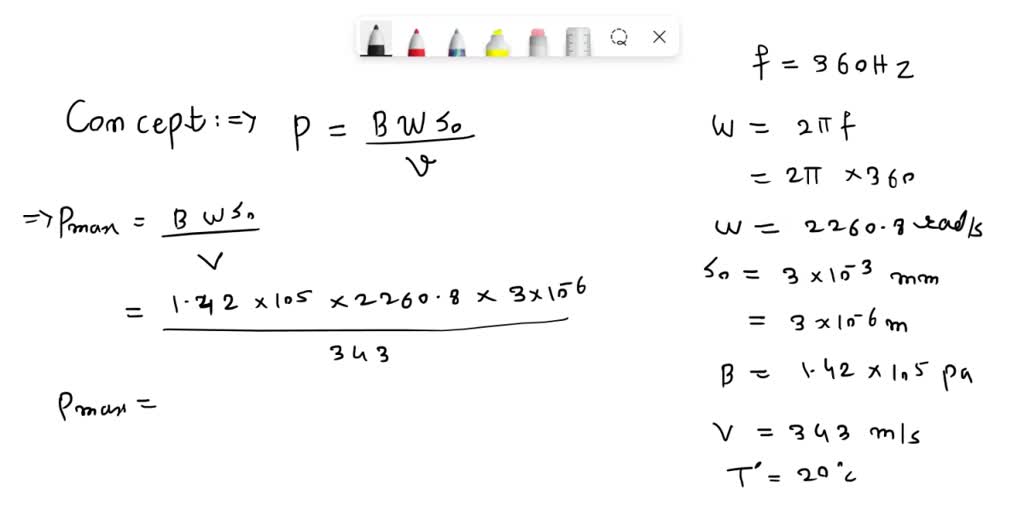 Concept :=> P = B W S₀ / V
=> Pmax = B W S₀ / V
= 1.42 × 10⁵ × 2260.8 × 3×10⁻⁶ / 343
Pmax =
f = 360HZ
W = 2πf
= 2π × 360
W = 2260.8 rad/s
S₀ = 3 × 10⁻³ mm
= 3 × 10⁻⁶ m
B = 1.42 × 10⁵ pa
V = 343 m/s
T = 20°c